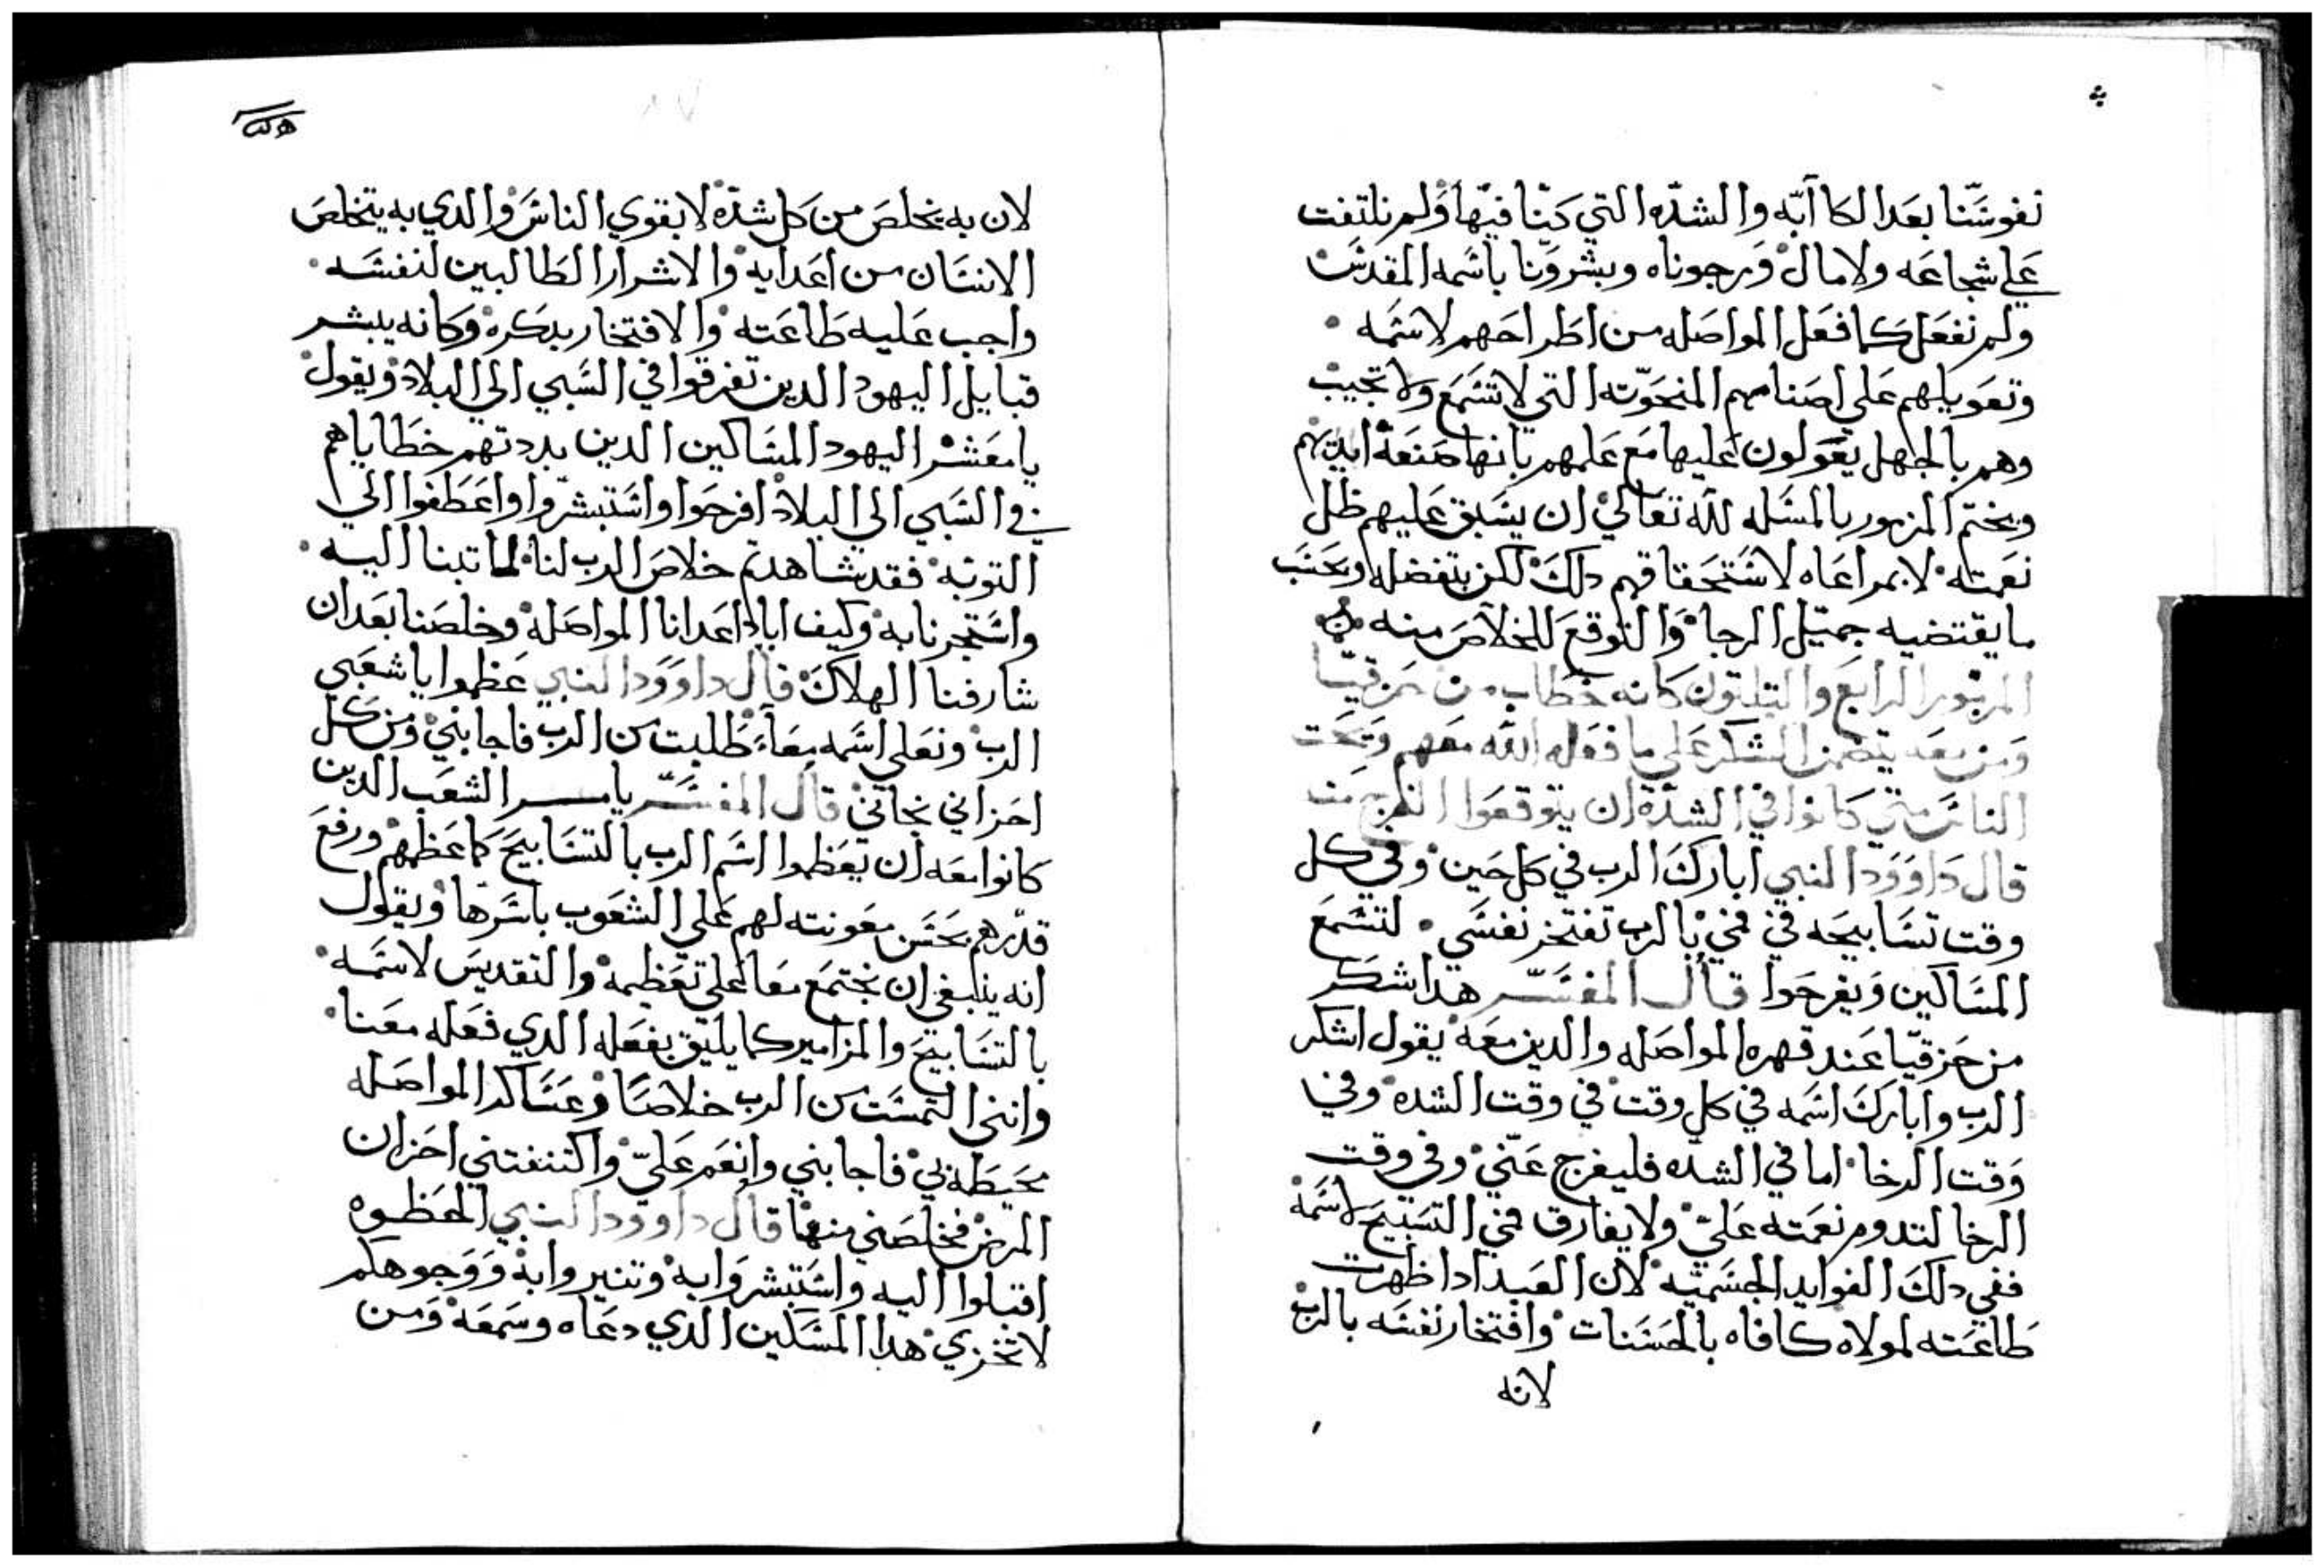 نفوسنا بعد الكاابه والشده التي كنا فيها ولم نلتفت
علي شجاعه ولا مال ورجوناه وبشرونا باسمه المقدس
ولم نفعل كما فعل المواصله من اطراحهم لاسمه
وتعويلهم علي اصنامهم المنحوته التي لا تسمع ولا تجيب
وهم بالجهل يعولون عليها مع علمهم بانها صنعة ايديهم
ويختم المزمور بالمسله لله تعالي ان يسبق عليهم ظل
نعمته لا بمراعاه لاستحقاقهم دلك لكن بتفضله وبحسب
ما يقتضيه جميل الرجا والتوقع للخلاص منه
المزمور الرابع والتلتون كانه خطاب من حزقيا
ومن معه يتضمن الشكر علي ما فعله الله معهم ويحت
الناس متي كانوا في الشدة ان يتوقعوا الفرج منه
قال داوود النبي ابارك الرب في كل حين وفي كل
وقت تسابيحه في فمي بالرب تفتخر نفسي لتسمع
المساكين ويفرحوا قال المفسر هدا شكر
من حزقيا عند قهره المواصله والدين معه يقول اشكر
الرب وابارك اسمه في كل وقت في وقت الشده وفي
وقت الرخا اما في الشده فليفرج عني وفي وقت
الرخا لتدوم نعمته علي ولا يفارق فمي التسبيح لاسمه
ففي دلك الفوايد الجسميه لان العبد ادا ظهرت
طاعته لمولاه كافاه بالحسنات وافتخار نفسه بالرب
لانه
لان به يخلص من كل شدة لا بقوي الناس والدي به يتخلص
الانسان من اعدايه والاشرار الطالبين لنفسه
واجب عليه طاعته والافتخار بدكره وكانه يبشر
قبايل اليهود الدين تفرقوا في السبي الي البلاد ويقول
يا معشر اليهود المساكين الدين بددتهم خطاياهم
في السبي الي البلاد افرحوا واستبشروا واعطفوا الي
التوبه فقد شاهدتم خلاص الرب لنا لما تبنا اليه
واستجرنا به وكيف اباد اعدانا المواصله وخلصنا بعد ان
شارفنا الهلاك قال داوود النبي عظموا يا شعبي
الرب ونعلي اسمه معا طلبت من الرب فاجابني ومن كل
احزاني نجاني قال المفسر يامر الشعب الدين
كانوا معه ان يعظموا اسم الرب بالتسابيح كما عظمهم ورفع
قدرهم بحسن معونته لهم علي الشعوب باسرها ويقول
انه ينبغي ان نجتمع معا علي تعظيمه والتقديس لاسمه
بالتسابيح والمزامير كما يليق بفعله الدي فعله معنا
وانني التمست من الرب خلاصا وعساكر المواصله
محيطة بي فاجابني وانعم علي واكتنفتني احزان
المرض فخلصني منها قال داوود النبي الحظوه
اقبلوا اليه واستبشروا به وتنيروا به ووجوهكم
لا تخزي هدا المسكين الدي دعاه وسمعه ومن